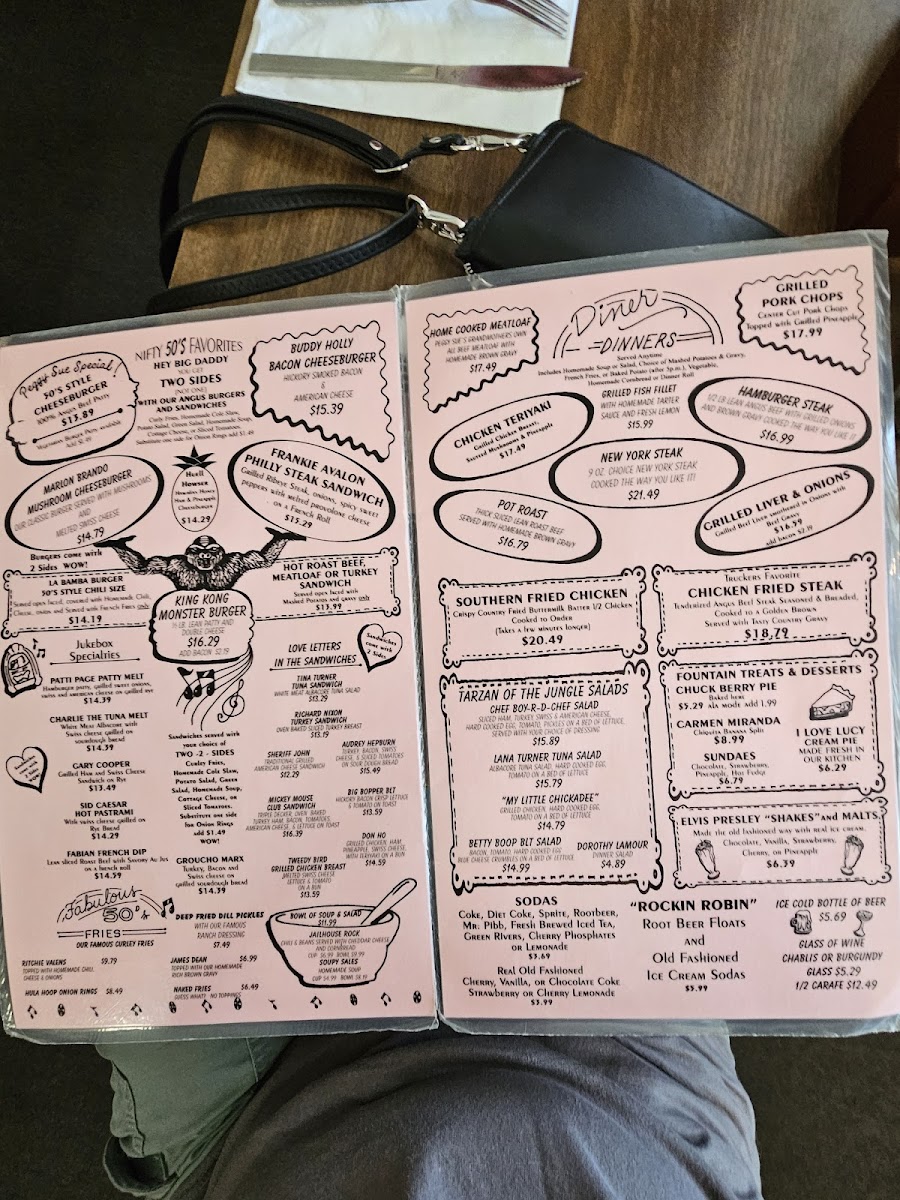 Peggy Sue Special!
50'S STYLE
CHEESEBURGER
100% Angus Beef Patty
$13.89
Vegetarian Burger Patty available
Add $1.49
NIFTY 50'S FAVORITES
HEY BIG DADDY
YOU GET
TWO SIDES
(NOT ONE)
WITH OUR ANGUS BURGERS
AND SANDWICHES
Curly Fries, Homemade Cole Slaw,
Potato Salad, Green Salad, Homemade Soup,
Cottage Cheese, or Sliced Tomatoes.
Substitute one side for Onion Rings add $1.49
BUDDY HOLLY
BACON CHEESEBURGER
HICKORY SMOKED BACON
&
AMERICAN CHEESE
$15.39
MARLON BRANDO
MUSHROOM CHEESEBURGER
OUR CLASSIC BURGER SERVED WITH MUSHROOMS
AND
MELTED SWISS CHEESE
$14.79
Huell
Howser
Ham & Pineapple
Cheeseburger
$14.29
FRANKIE AVALON
PHILLY STEAK SANDWICH
Grilled Ribeye Steak, onions, spicy sweet
peppers with melted provolone cheese
on a French Roll
$15.29
BURGERS COME WITH
2 SIDES WOW!
LA BAMBA BURGER
50'S STYLE CHILI SIZE
Served open faced, covered with Homemade Chili,
Cheese, onion and Served with French Fries only
$14.19
KING KONG
MONSTER BURGER
½ LB. LEAN PATTY AND
DOUBLE CHEESE
$16.29
ADD BACON $2.19
HOT ROAST BEEF,
MEATLOAF OR TURKEY
SANDWICH
Served open faced with
Mashed Potatoes and gravy only
$13.99
Jukebox
Specialties
PATTI PAGE PATTY MELT
Hamburger patty, grilled sweet onions,
swiss and american cheese on grilled rye
$14.39
CHARLIE THE TUNA MELT
White Meat Albacore with
Swiss cheese on grilled
sourdough bread
$14.39
GARY COOPER
Grilled Ham and Swiss Cheese
Sandwich on Rye
$13.49
SID CAESAR
HOT PASTRAMI
With swiss cheese grilled on
Rye Bread
$14.29
FABIAN FRENCH DIP
Lean sliced Roast Beef with Savory Au Jus
on a french roll
$14.59
Sandwiches
come with
2 Sides
Sandwiches served with
your choice of
TWO -2- SIDES
Curley Fries,
Homemade Cole Slaw,
Potato Salad, Green
Salad, Homemade Soup,
Cottage Cheese, or
Sliced Tomatoes.
Substitute one side
for Onion Rings
add $1.49
WOW!
GROUCHO MARX
Turkey, Bacon and
Swiss cheese on
grilled sourdough bread
$14.39
LOVE LETTERS
IN THE SANDWICHES
Sandwiches
come with
2 Sides
TINA TURNER
TUNA SANDWICH
WHITE MEAT ALBACORE TUNA SALAD
$13.29
RICHARD NIXON
TURKEY SANDWICH
OVEN BAKED SLICED TURKEY BREAST
$13.19
SHERIFF JOHN
TRADITIONAL GRILLED
AMERICAN CHEESE SANDWICH
$12.29
AUDREY HEPBURN
TURKEY, BACON, SWISS
CHEESE, & SLICED TOMATOES
ON SOUR DOUGH BREAD
$15.49
MICKEY MOUSE
CLUB SANDWICH
TRIPLE DECKER, OVEN BAKED
TURKEY, HAM, BACON, TOMATOES,
AMERICAN CHEESE, & LETTUCE ON TOAST
$16.39
BIG BOPPER BLT
HICKORY BACON CRISP LETTUCE
& TOMATO ON TOAST
$13.59
DON HO
GRILLED CHICKEN, HAM,
PINEAPPLE, SWISS CHEESE,
WITH TERIYAKI ON A BUN
$14.59
TWEEDY BIRD
GRILLED CHICKEN BREAST
MELTED SWISS CHEESE
LETTUCE & TOMATO
ON A BUN
$13.59
Fabulous
50's
FRIES
OUR FAMOUS CURLEY FRIES
RITCHIE VALENS $9.79
TOPPED WITH HOMEMADE CHILI,
CHEESE & ONIONS
HULA HOOP ONION RINGS $8.49
DEEP FRIED DILL PICKLES
WITH OUR FAMOUS
RANCH DRESSING
$7.49
JAMES DEAN $6.99
TOPPED WITH OUR HOMEMADE
RICH BROWN GRAVY
NAKED FRIES $6.49
GUESS WHAT? NO TOPPINGS
BOWL OF SOUP & SALAD
$11.99
JAILHOUSE ROCK
CHILI & BEANS SERVED WITH CHEDDAR CHEESE
AND CORNBREAD
CUP $6.99 BOWL $9.99
SOUPY SALES
HOMEMADE SOUP
CUP $4.99 BOWL $8.19
HOME COOKED MEATLOAF
PEGGY SUE'S GRANDMOTHERS OWN
ALL BEEF MEATLOAF WITH
HOMEMADE BROWN GRAVY
$17.49
Diner
DINNERS
Served Anytime
Includes Homemade Soup or Salad, Choice of Mashed Potatoes & Gravy,
French Fries, or Baked Potato (after 5p.m.), Vegetable,
Homemade Cornbread or Dinner Roll
GRILLED
PORK CHOPS
CENTER CUT PORK CHOPS
Topped with Grilled Pineapple
$17.99
CHICKEN TERIYAKI
Grilled Chicken Breast,
Sauteed Mushrooms & Pineapple
$17.49
GRILLED FISH FILLET
WITH HOMEMADE TARTER
SAUCE AND FRESH LEMON
$15.99
HAMBURGER STEAK
1/2 LB LEAN ANGUS BEEF WITH GRILLED ONIONS
AND BROWN GRAVY COOKED THE WAY YOU LIKE IT
$16.99
NEW YORK STEAK
9 OZ. CHOICE NEW YORK STEAK
COOKED THE WAY YOU LIKE IT!
$21.49
POT ROAST
THICK SLICED LEAN ROAST BEEF
SERVED WITH HOMEMADE BROWN GRAVY
$16.79
GRILLED LIVER & ONIONS
Grilled Beef Liver smothered in Onions with
Beef Gravy
$16.59
add bacon $2.19
SOUTHERN FRIED CHICKEN
CRISPY COUNTRY FRIED BUTTERMILK BATTER 1/2 CHICKEN
COOKED TO ORDER
(TAKES A FEW MINUTES LONGER)
$20.49
TRUCKERS FAVORITE
CHICKEN FRIED STEAK
TENDERIZED ANGUS BEEF STEAK SEASONED & BREADED,
COOKED TO A GOLDEN BROWN
SERVED WITH TASTY COUNTRY GRAVY
$18.79
TARZAN OF THE JUNGLE SALADS
CHEF BOY-R-D-CHEF SALAD
SLICED HAM, TURKEY, SWISS & AMERICAN CHEESE,
HARD COOKED EGG, TOMATO, PICKLES ON A BED OF LETTUCE,
SERVED WITH YOUR CHOICE OF DRESSING
$15.89
LANA TURNER TUNA SALAD
ALBACORE TUNA SALAD, HARD COOKED EGG,
TOMATO ON A BED OF LETTUCE
$15.79
"MY LITTLE CHICKADEE"
GRILLED CHICKEN, HARD COOKED EGG,
TOMATO ON A BED OF LETTUCE
$14.79
BETTY BOOP BLT SALAD
BACON, TOMATO, HARD COOKED EGG
BLUE CHEESE CRUMBLES ON A BED OF LETTUCE
$14.99
DOROTHY LAMOUR
DINNER SALAD
$4.89
FOUNTAIN TREATS & DESSERTS
CHUCK BERRY PIE
Baked here
$5.29 ala mode add 1.99
CARMEN MIRANDA
Chiquita Banana Split
$8.99
SUNDAES
Chocolate, Strawberry,
Pineapple, Hot Fudge
$6.79
I LOVE LUCY
CREAM PIE
MADE FRESH IN
OUR KITCHEN
$6.29
ELVIS PRESLEY "SHAKES" and MALTS
Made the old fashioned way with real ice cream.
Chocolate, Vanilla, Strawberry,
Cherry, or Pineapple
$6.39
SODAS
COKE, DIET COKE, SPRITE, ROOTBEER,
MR. PIBB, FRESH BREWED ICED TEA,
GREEN RIVERS, CHERRY PHOSPHATES
OR LEMONADE
$3.69
REAL OLD FASHIONED
CHERRY, VANILLA, OR CHOCOLATE COKE
STRAWBERRY OR CHERRY LEMONADE
$3.99
"ROCKIN ROBIN"
ROOT BEER FLOATS
AND
OLD FASHIONED
ICE CREAM SODAS
$5.99
ICE COLD BOTTLE OF BEER
$5.69
GLASS OF WINE
CHABLIS OR BURGUNDY
GLASS $5.29
1/2 CARAFE $12.49